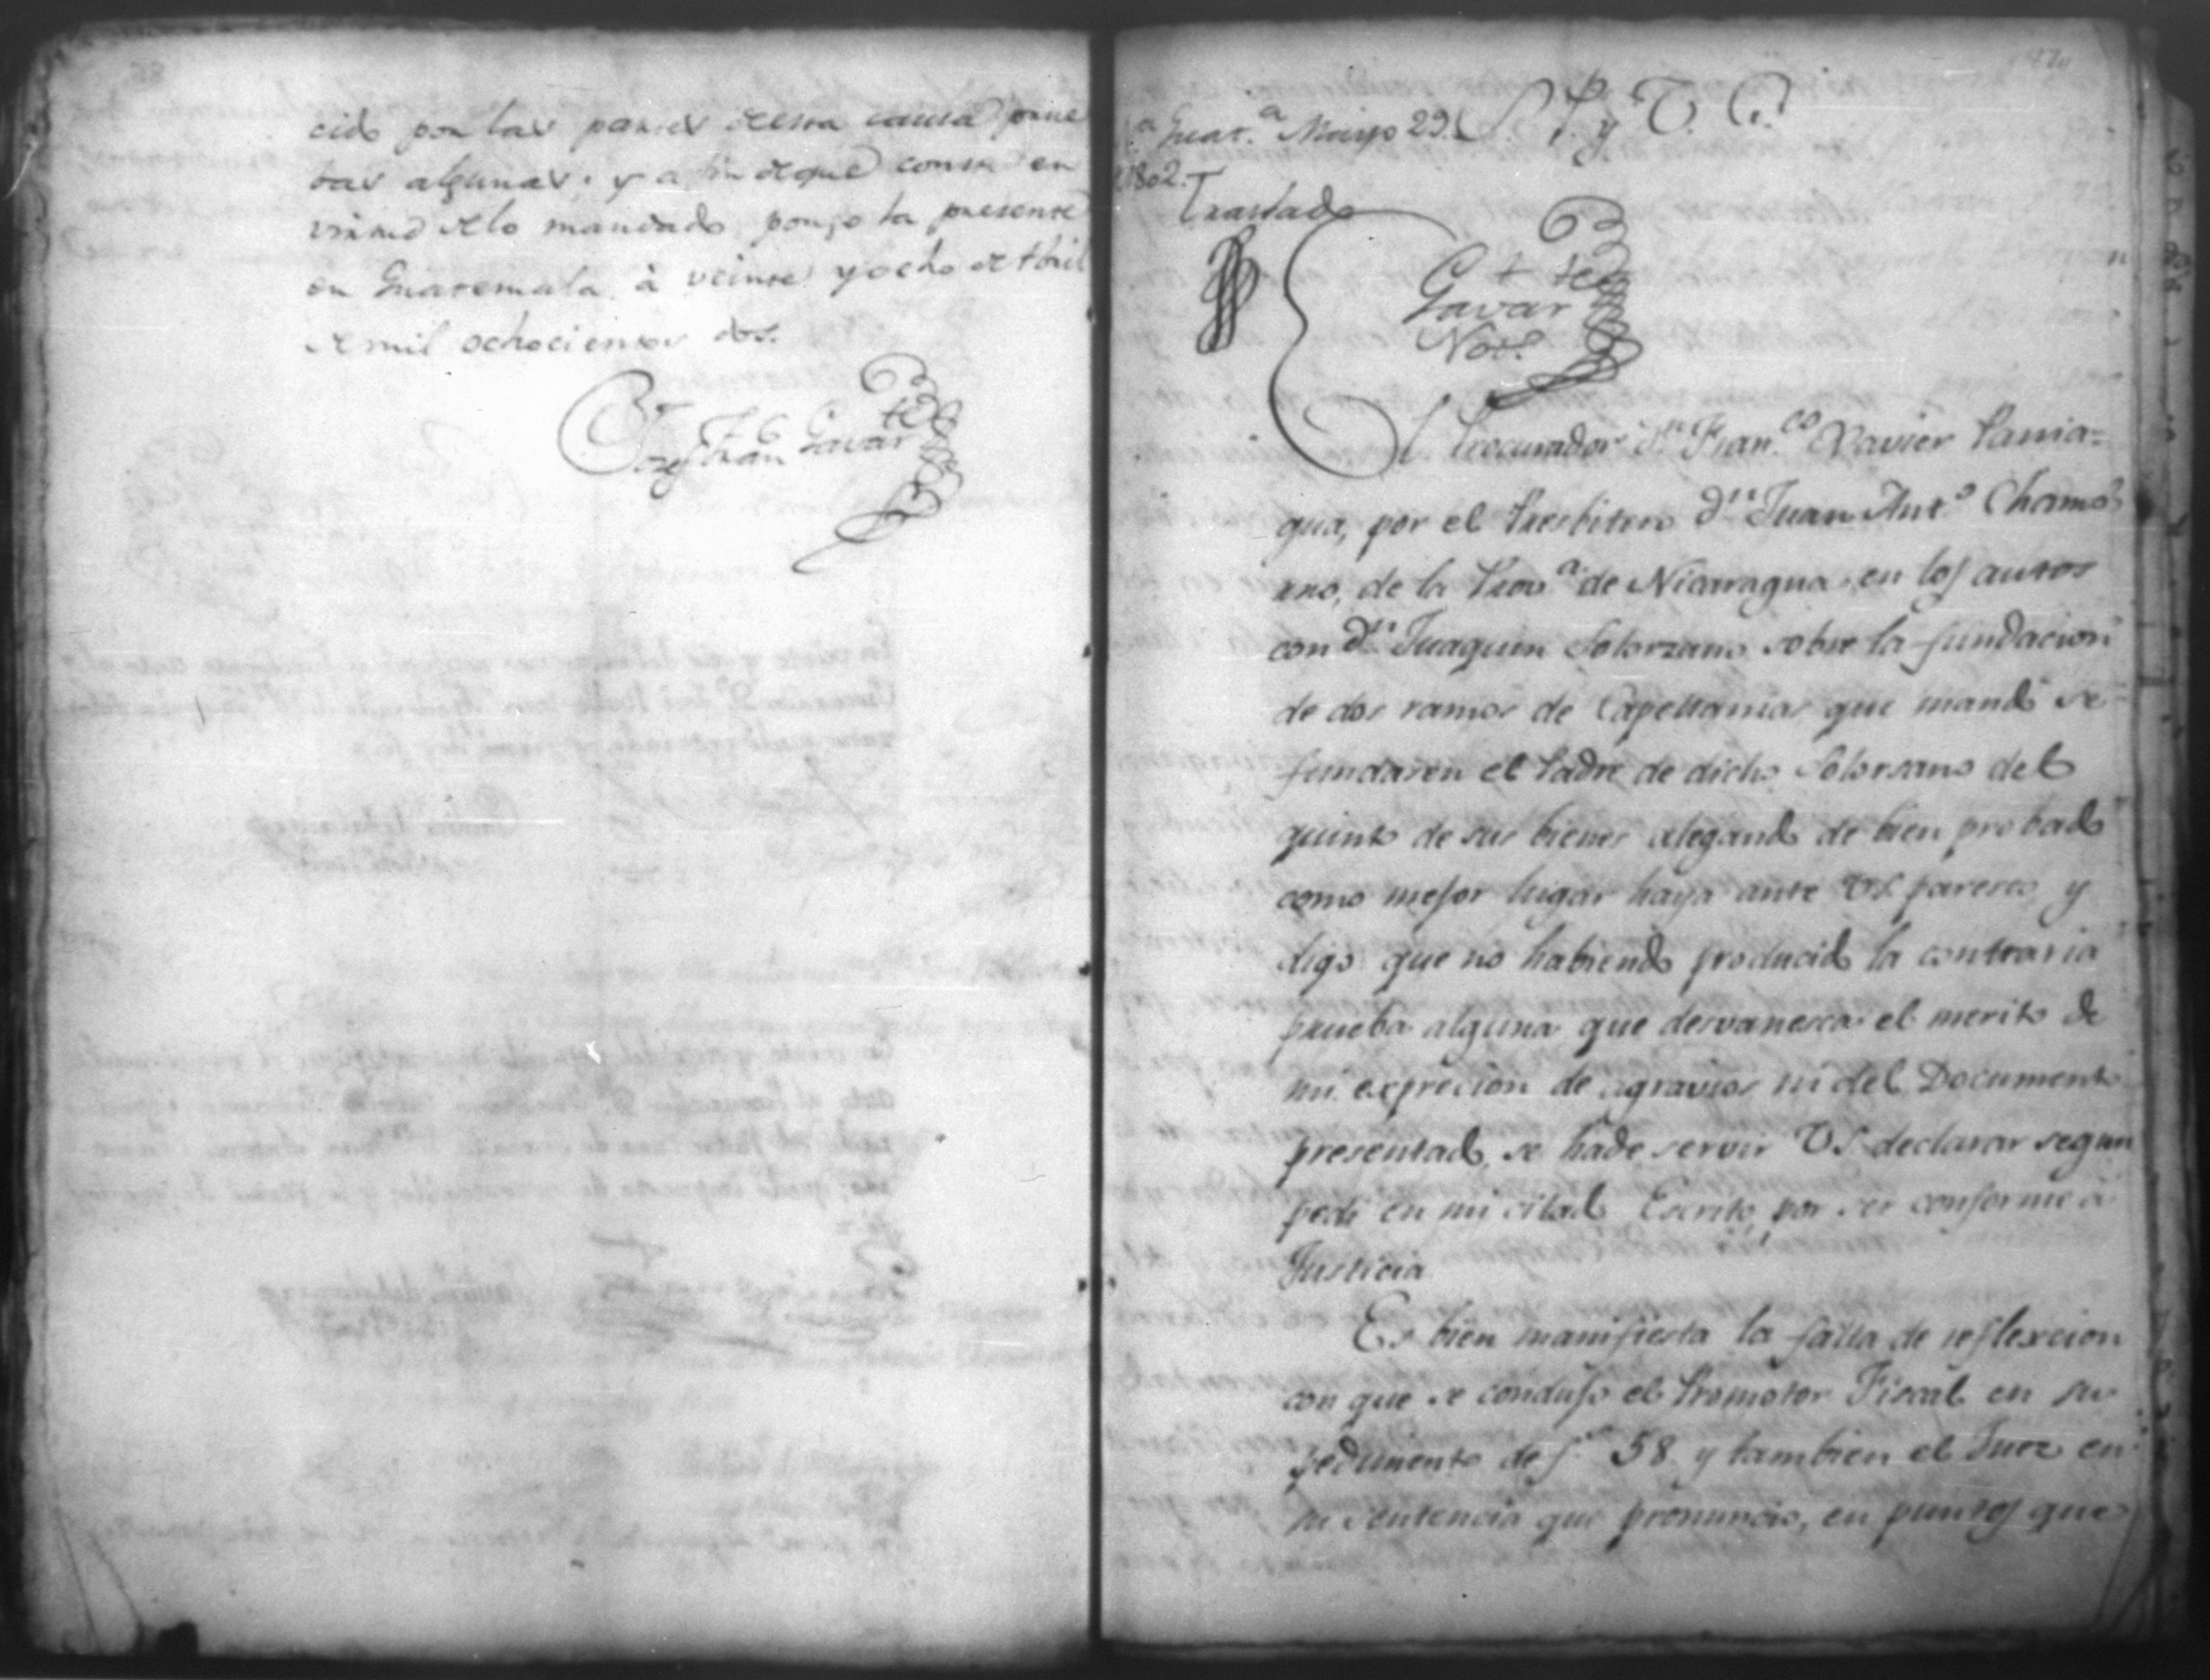 cido por las partes de esta causa prue
bas algunas; y a fin de que conste en
virtud de lo mandado pongo la presente
en Guatemala à veinte y ocho de Abril
de mil ochocientos dos.
Guat.ª Mayo 29.
1802.
Traslado
S. P. y V. G.
Gavar
Not.
El Procurador d.n Fran.co Xavier Pania=
gua, por el Presbitero d.n Juan Ant.o Chamo
rro, de la Prov.a de Nicaragua en los autos
con d.n Juaquin Solorzano sobre la fundacion
de dos ramos de Capellanias que mandó se
fundaren el Padre de dicho Solorsano del
quinto de sus bienes alegando de bien probado
como mejor lugar haya ante VS. paresco y
digo que no habiendo producido la contraria
prueba alguna que desvanesca el merito de
mi exprecion de agravios ni del Documento
presentado, se hade servir VS. declarar segun
pedi en mi citado Escrito, por ser conforme à
Justicia
Es bien manifiesta la falta de reflexcion
con que se condujo el Promotor Fiscal en su
pedimento de f.s 58. y tambien el Juez en
su sentencia que pronuncio, en puntos que